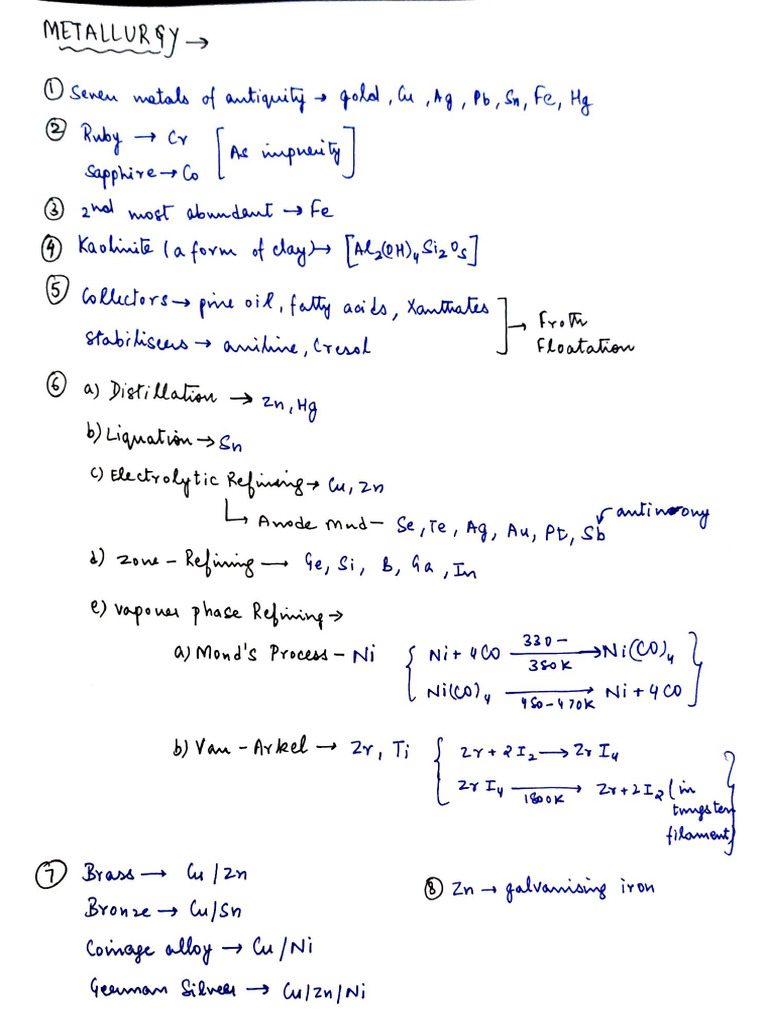 METALLURGY →
① Seven metals of antiquity → gold, Cu, Ag, Pb, Sn, Fe, Hg
② Ruby → Cr [As impurity]
Sapphire → Co
③ 2nd most abundant → Fe
④ Kaolinite (a form of clay) → [Al₂(OH)₄Si₂O₅]
⑤ Collectors → pine oil, fatty acids, Xanthates
Stabilisers → aniline, Cresol
→ Froth
Floatation
⑥ a) Distillation → Zn, Hg
b) Liquation → Sn
c) Electrolytic Refining → Cu, Zn
↳ Anode Mud – Se, Te, Ag, Au, Pt, Sb antimony
d) Zone – Refining — Ge, Si, B, Ga, In
e) Vapour phase Refining →
a) Mond's Process – Ni
Ni + 4CO 330–350K → Ni(CO)₄
Ni(CO)₄ 450–470K → Ni + 4CO
b) Van – Arkel → Zr, Ti
Zr + 2I₂ → ZrI₄
ZrI₄ 1800K → Zr + 2I₂ (in
tungsten
filament)
⑦ Brass → Cu/Zn
Bronze → Cu/Sn
Coinage alloy → Cu/Ni
German Silver → Cu/Zn/Ni
⑧ Zn → galvanising iron